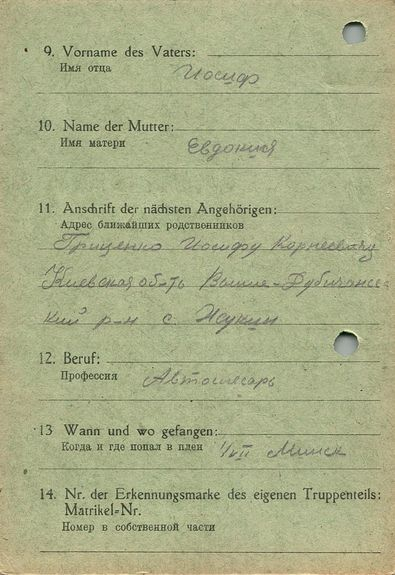 9. Vorname des Vaters:
Имя отца
Иосиф
10. Name der Mutter:
Имя матери
Евдокия
11. Anschrift der nächsten Angehörigen:
Адрес ближайших родственников
Гриценко Иосифу Корнеевичу
Киевская об-ть Выше-Дубичанс-
кий р-н с. Жукин
12. Beruf:
Профессия
Автослесарь
13 Wann und wo gefangen:
Когда и где попал в плен
Минск
14. Nr. der Erkennungsmarke des eigenen Truppenteils:
Matrikel-Nr.
Номер в собственной части